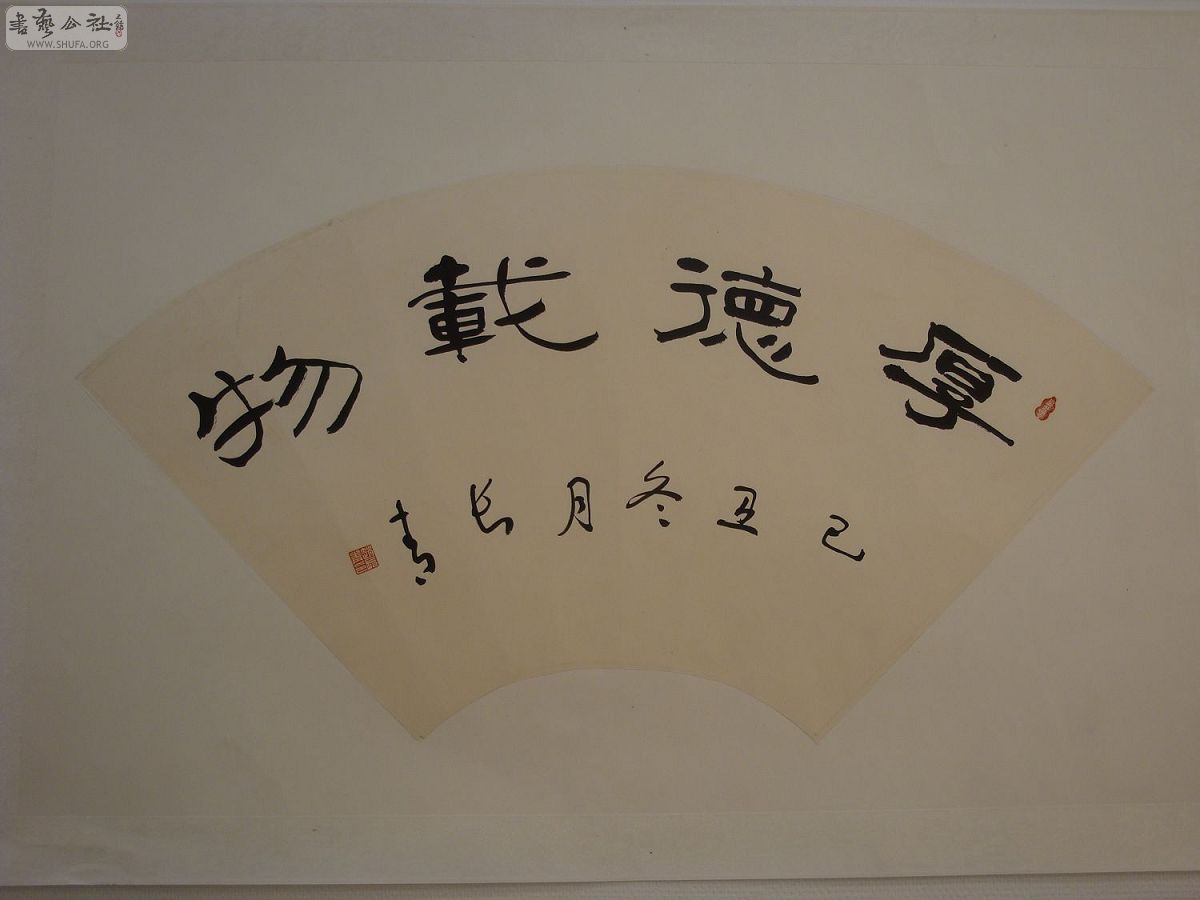 厚德載物
己丑冬月長青
書藝公社
WWW.SHUFA.ORG